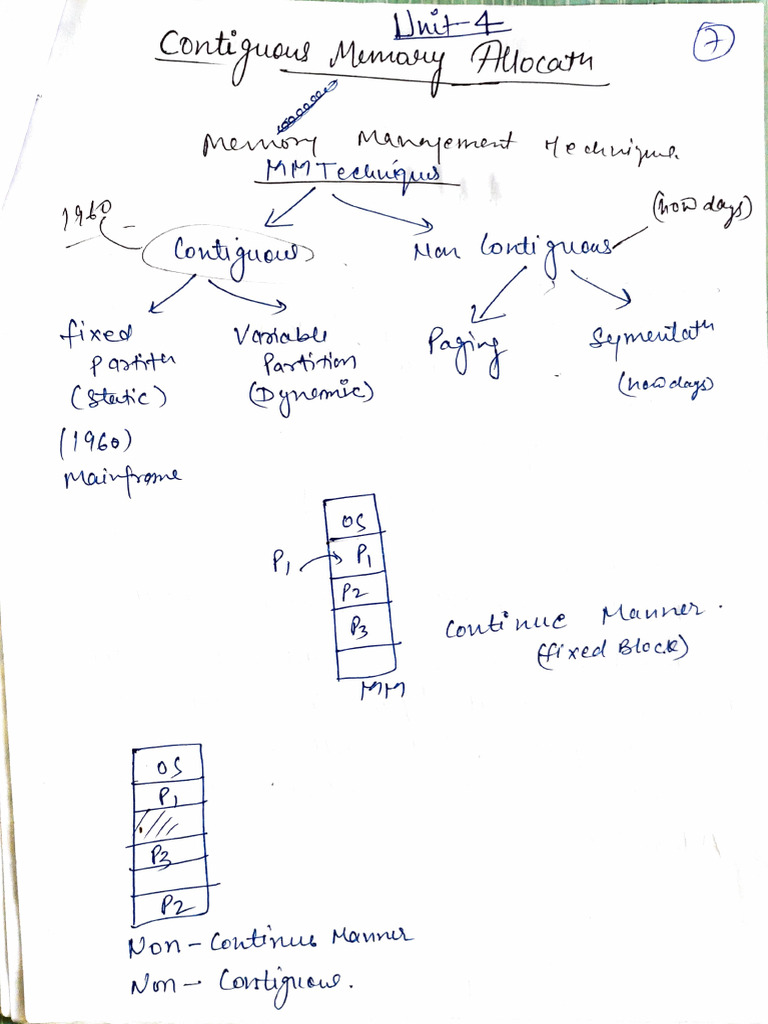 Unit-4
7
Contiguous Memory Allocatn
Memory Management Technique.
MM Techniques
1960
(now days)
Contiguous
Non Contiguous
fixed
Partitn
(Static)
(1960)
Mainframe
Variable
Partition
(Dynamic)
Paging
Segmentatn
(now days)
OS
P1
P1
P2
P3
MM
Continue Manner.
(fixed Block)
OS
P1
P3
P2
Non-Continus Manner
Non-Contiguous.